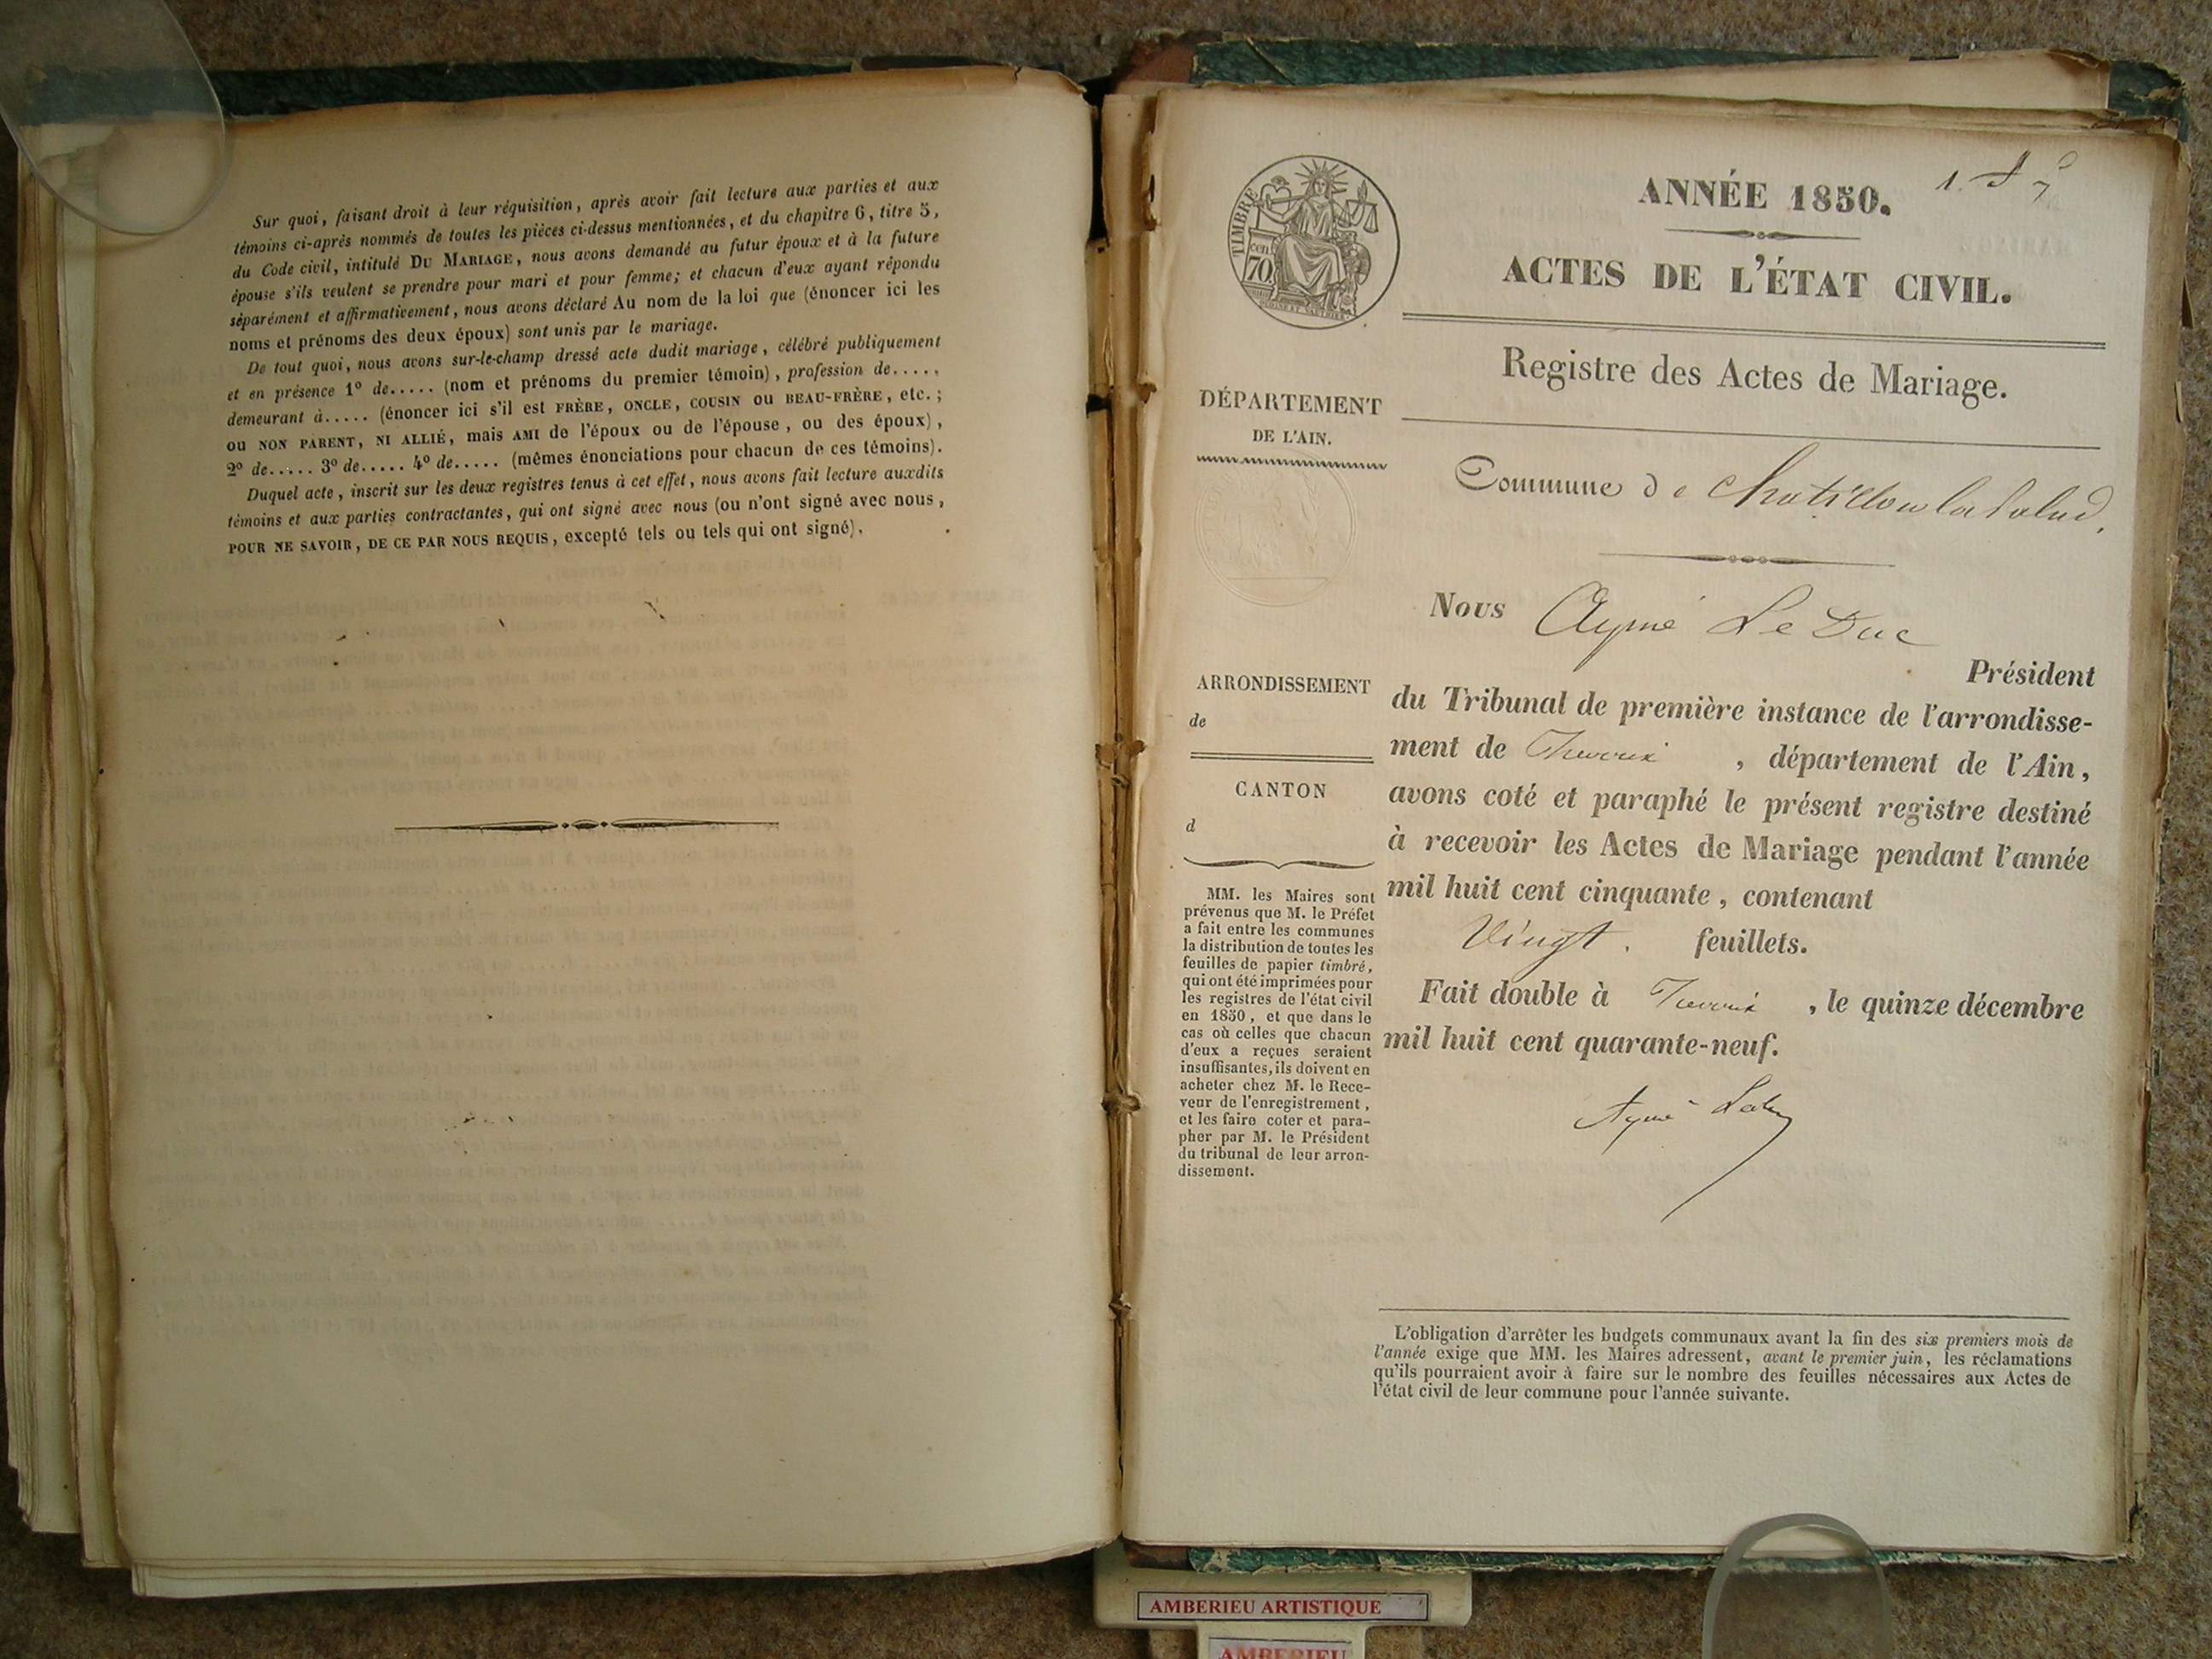 Sur quoi, faisant droit à leur réquisition, après avoir fait lecture aux parties et aux
témoins ci-après nommés de toutes les pièces ci-dessus mentionnées, et du chapitre 6, titre 5,
du Code civil, intitulé DU MARIAGE, nous avons demandé au futur époux et à la future
épouse s'ils veulent se prendre pour mari et pour femme; et chacun d'eux ayant répondu
séparément et affirmativement, nous avons déclaré Au nom de la loi que (énoncer ici les
noms et prénoms des deux époux) sont unis par le mariage.
De tout quoi, nous avons sur-le-champ dressé acte dudit mariage, célébré publiquement
et en présence 1º de..... (nom et prénoms du premier témoin), profession de.....,
demeurant à..... (énoncer ici s'il est FRÈRE, ONCLE, COUSIN OU BEAU-FRÈRE, etc.;
ou NON PARENT, NI ALLIÉ, mais AMI de l'époux ou de l'épouse, ou des époux),
2º de..... 3º de..... 4º de..... (mêmes énonciations pour chacun de ces témoins).
Duquel acte, inscrit sur les deux registres tenus à cet effet, nous avons fait lecture auxdits
témoins et aux parties contractantes, qui ont signé avec nous (ou n'ont signé avec nous,
POUR NE SAVOIR, DE CE PAR NOUS REQUIS, excepté tels ou tels qui ont signé).
TIMBRE
cen
70
ANNÉE 1850.
1.
ACTES DE L'ÉTAT CIVIL.
Registre des Actes de Mariage.
DÉPARTEMENT
DE L'AIN.
Commune de Chatillon la Palud,
Nous Aymé Le Duc
Président
du Tribunal de première instance de l'arrondisse-
ment de Trevoux, département de l'Ain,
avons coté et paraphé le présent registre destiné
à recevoir les Actes de Mariage pendant l'année
mil huit cent cinquante, contenant
Vingt. feuillets.
Fait double à Trevoux, le quinze décembre
mil huit cent quarante-neuf.
Aymé Leduc
ARRONDISSEMENT
de
CANTON
d
MM. les Maires sont
prévenus que M. le Préfet
a fait entre les communes
la distribution de toutes les
feuilles de papier timbré,
qui ont été imprimées pour
les registres de l'état civil
en 1850, et que dans le
cas où celles que chacun
d'eux a reçues seraient
insuffisantes, ils doivent en
acheter chez M. le Rece-
veur de l'enregistrement,
et les faire coter et para-
pher par M. le Président
du tribunal de leur arron-
dissement.
L'obligation d'arrêter les budgets communaux avant la fin des six premiers mois de
l'année exige que MM. les Maires adressent, avant le premier juin, les réclamations
qu'ils pourraient avoir à faire sur le nombre des feuilles nécessaires aux Actes de
l'état civil de leur commune pour l'année suivante.
AMBERIEU ARTISTIQUE
AMBERIEU